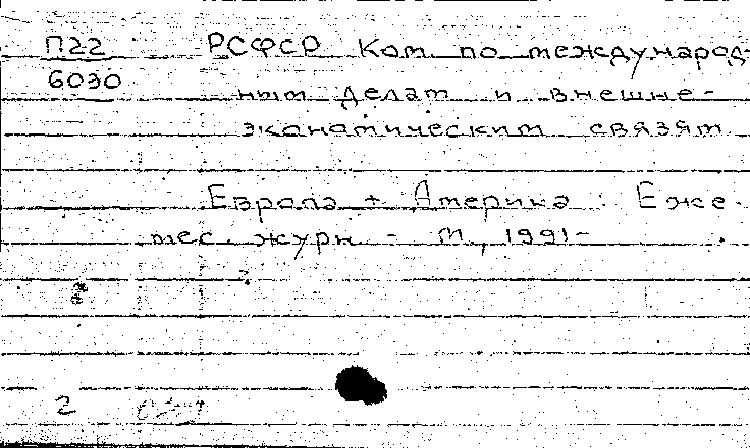 П22
6030
РСФСР Ком. по международ-
ным делам и внешне-
экономическим связям.
Европа + Америка : Еже-
мес. журн. - М., 1991-
2